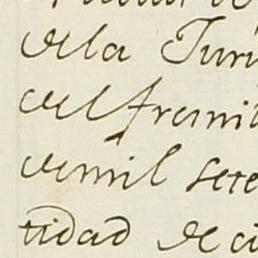 de la Juri
del fremi
de mil sete
tidad de ci